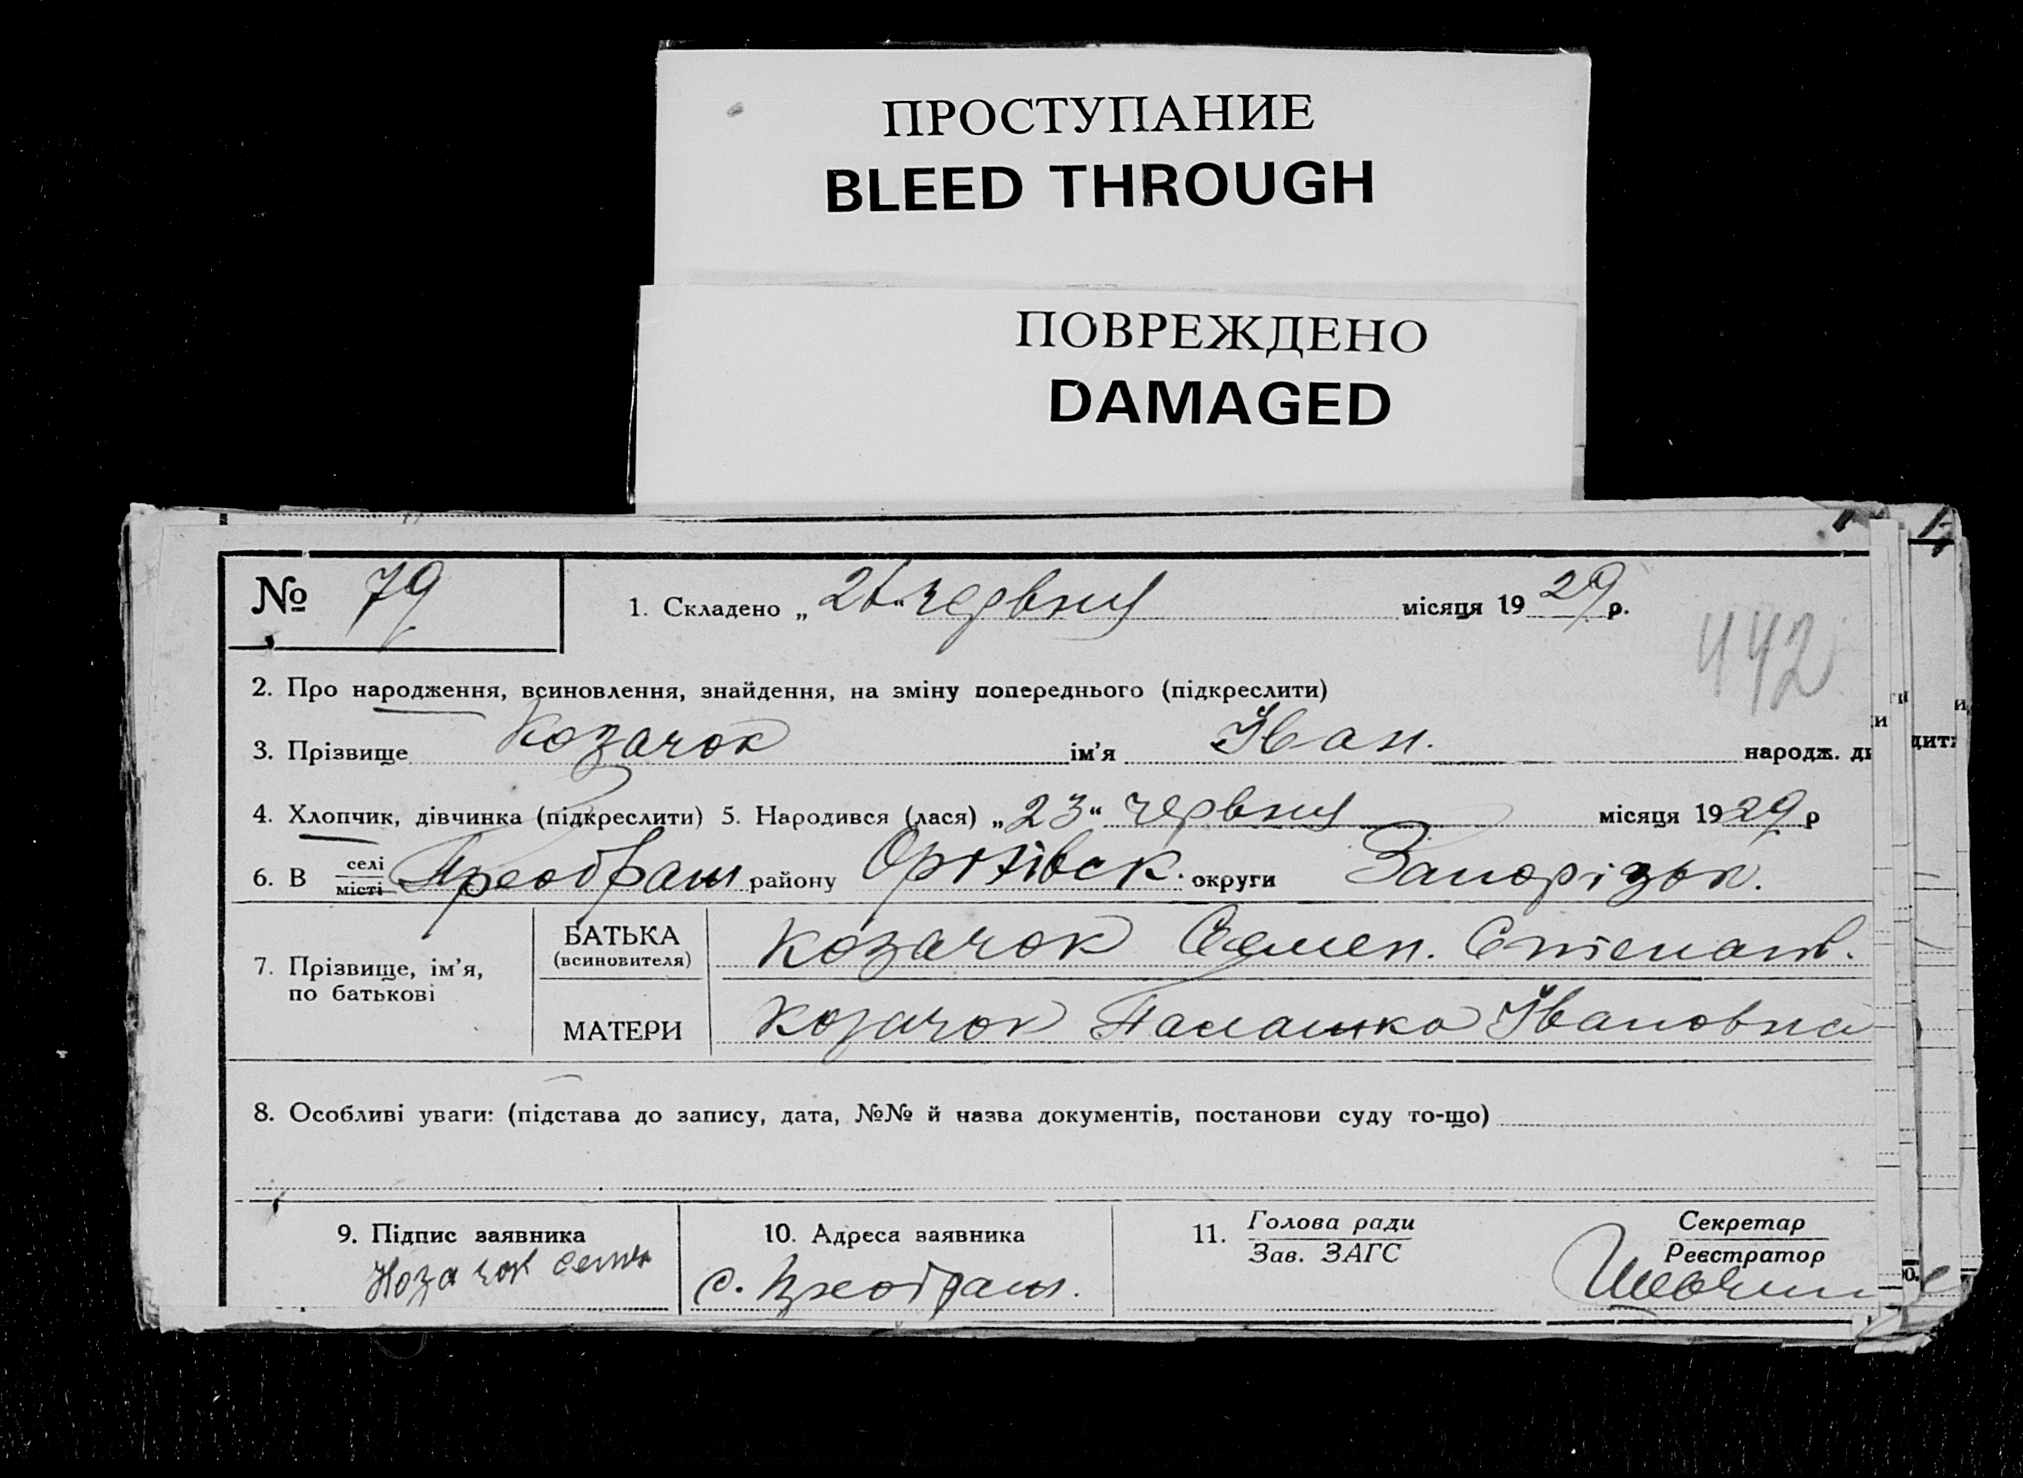 ПРОСТУПАНИЕ
BLEED THROUGH
ПОВРЕЖДЕНО
DAMAGED
№ 79
1. Складено „ червня місяця 1929 р.
442
2. Про народження, всиновлення, знайдення, на зміну попереднього (підкреслити)
3. Прізвище Козачок ім'я Іван. народж. ди
4. Хлопчик, дівчинка (підкреслити) 5. Народився (лася) „23“ червня місяця 1929 р
6. В селі місті Преображ району Оріхівськ. округи Запорізьк.
7. Прізвище, ім'я, по батькові
БАТЬКА (всиновителя) Козачок Семен. Степанов.
МАТЕРИ Козачок Палашка Івановна
8. Особливі уваги: (підстава до запису, дата, №№ й назва документів, постанови суду то-що)
9. Підпис заявника
Козачок Семен
10. Адреса заявника
с. Преображ.
11. Голова ради
Зав. ЗАГС
Секретар
Реєстратор